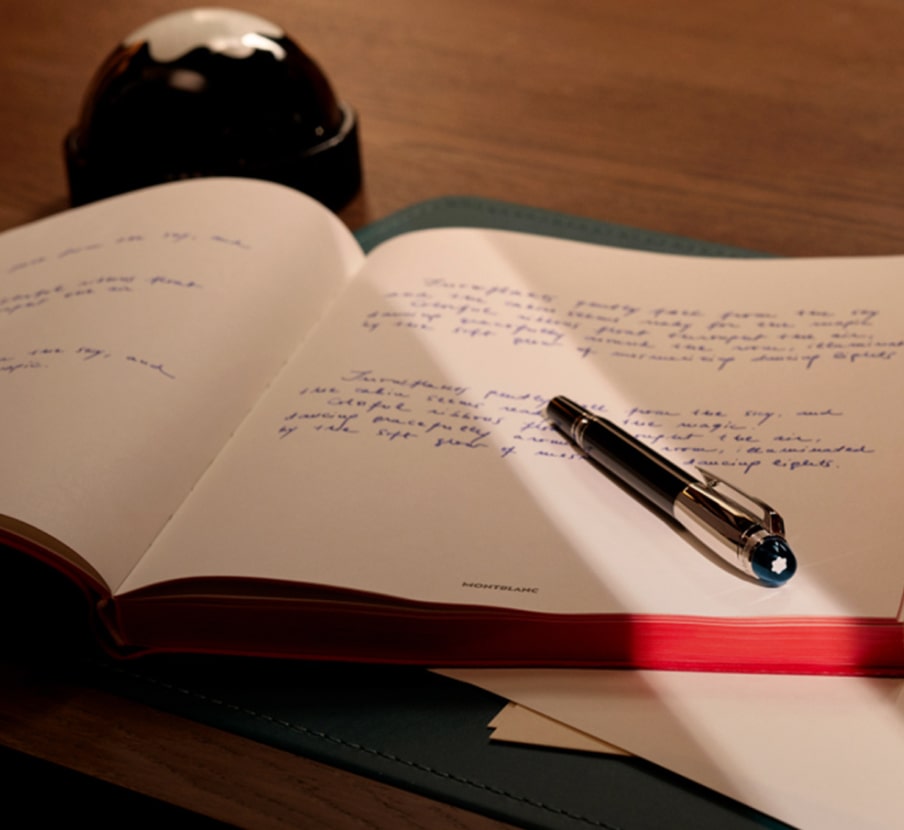 from the sky, and
float
the air
the sky, and
Snowflakes gently fall from the sky
and the cabin seems ready for the magic
Colorful ribbons float throughput the air,
dancing gracefully around the room, illuminat
by the soft glow of mesmerizing dancing lights
Snowflakes gently fall from the sky, and
the cabin seems the magic.
Colorful ribbons the air,
dancing gracefully room, illuminated
by the soft glow of dancing lights.
MONTBLANC